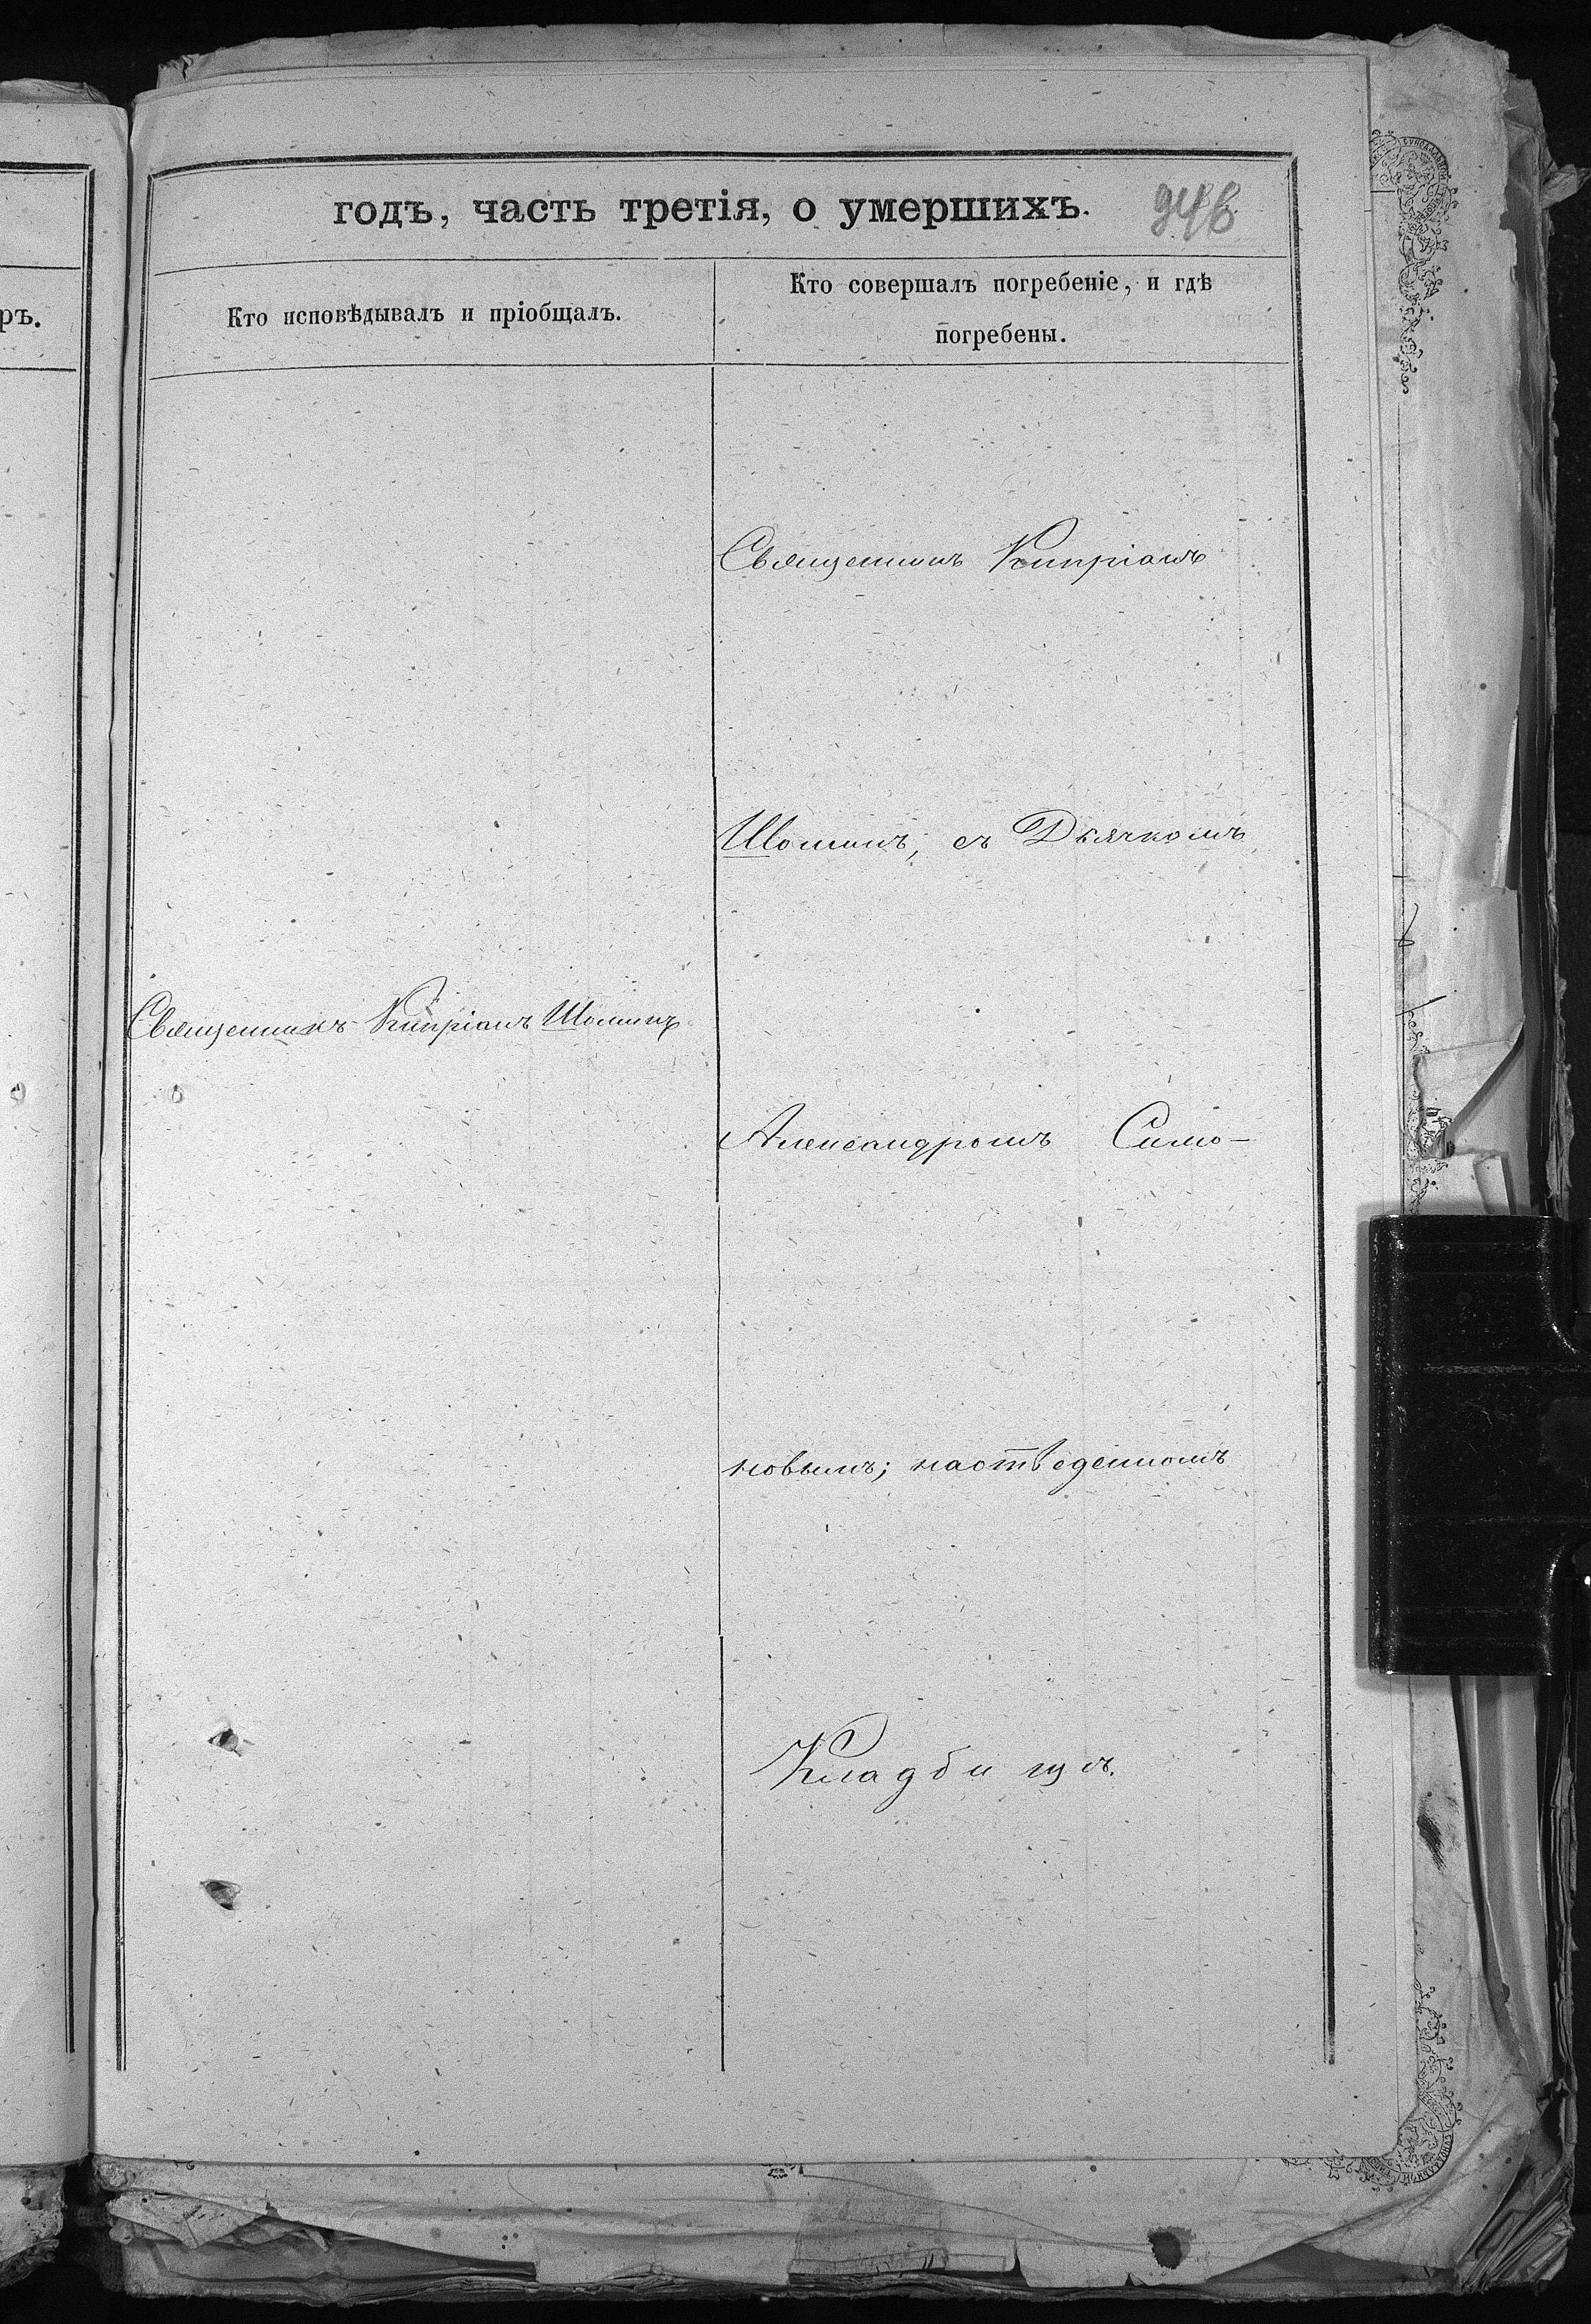 ръ.
годъ, часть третія, о умершихъ.
946
Кто исповѣдывалъ и пріобщалъ.
Кто совершалъ погребеніе, и гдѣ
погребены.
Священникъ Кипріанъ
Шоминъ, съ Дьячкомъ
Священникъ Кипріанъ Шоминъ
Александромъ Симо-
новымъ; наотведенномъ
Кладбищѣ.